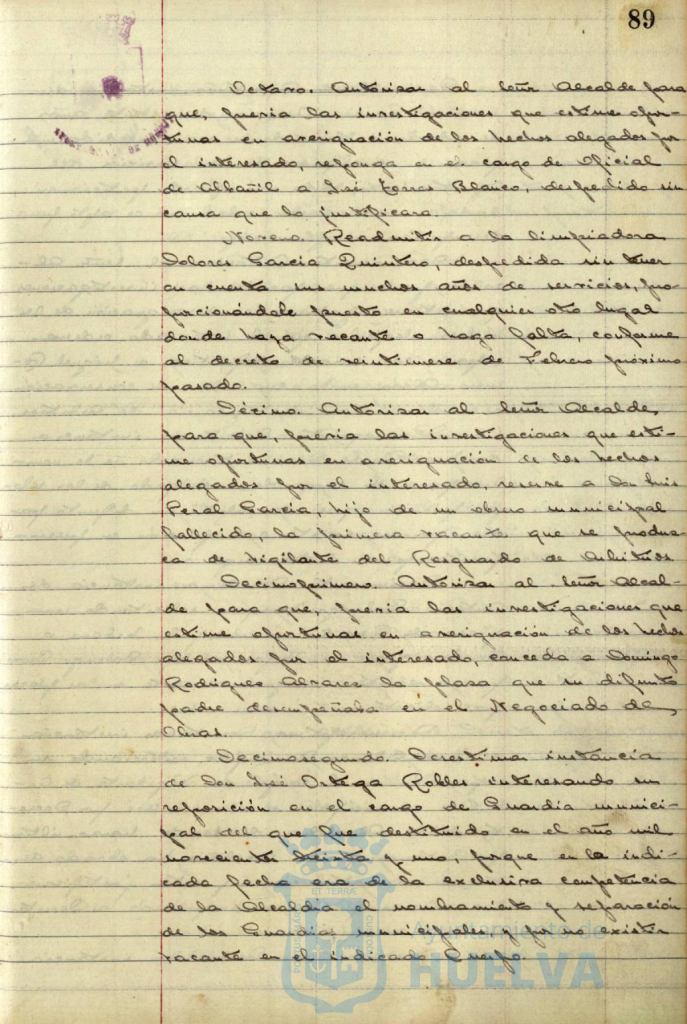 89
Octavo. Autorizar al Señor Alcalde para
que, previa las investigaciones que estime opor-
tunas en averiguación de los hechos alegados por
el interesado, reponga en el cargo de Oficial
de Albañil a José Torres Blanco, despedido sin
causa que lo justificara.
Noveno. Readmitir a la limpiadora
Dolores García Quintero, despedida sin tener
en cuenta sus muchos años de servicios, pro-
porcionándole puesto en cualquier otro lugar
donde haya vacante o haga falta, conforme
al decreto de veintinueve de Febrero próximo
pasado.
Décimo. Autorizar al Señor Alcalde,
para que, previa las investigaciones que esti-
me oportunas en averiguación de los hechos
alegados por el interesado, reserve a Don Luis
Peral García, hijo de un obrero municipal
fallecido, la primera vacante que se produz-
ca de Vigilante del Resguardo de Arbitrios.
Decimoprimero. Autorizar al Señor Alcal-
de para que, previa las investigaciones que
estime oportunas en averiguación de los hechos
alegados por el interesado, conceda a Domingo
Rodriguez Alvarez la plaza que su difunto
padre desempeñaba en el Negociado de
Obras.
Decimosegundo. Desestimar instancia
de Don José Ortega Robles interesando su
reposición en el cargo de Guardia munici-
pal del que fue destituido en el año mil
novecientos treinta y uno, porque en la indi-
cada fecha era de la exclusiva competencia
de la Alcaldía el nombramiento y separación
de los Guardias municipales y por no existir
vacante en el indicado Cuerpo.
Ayuntamiento de
HUELVA